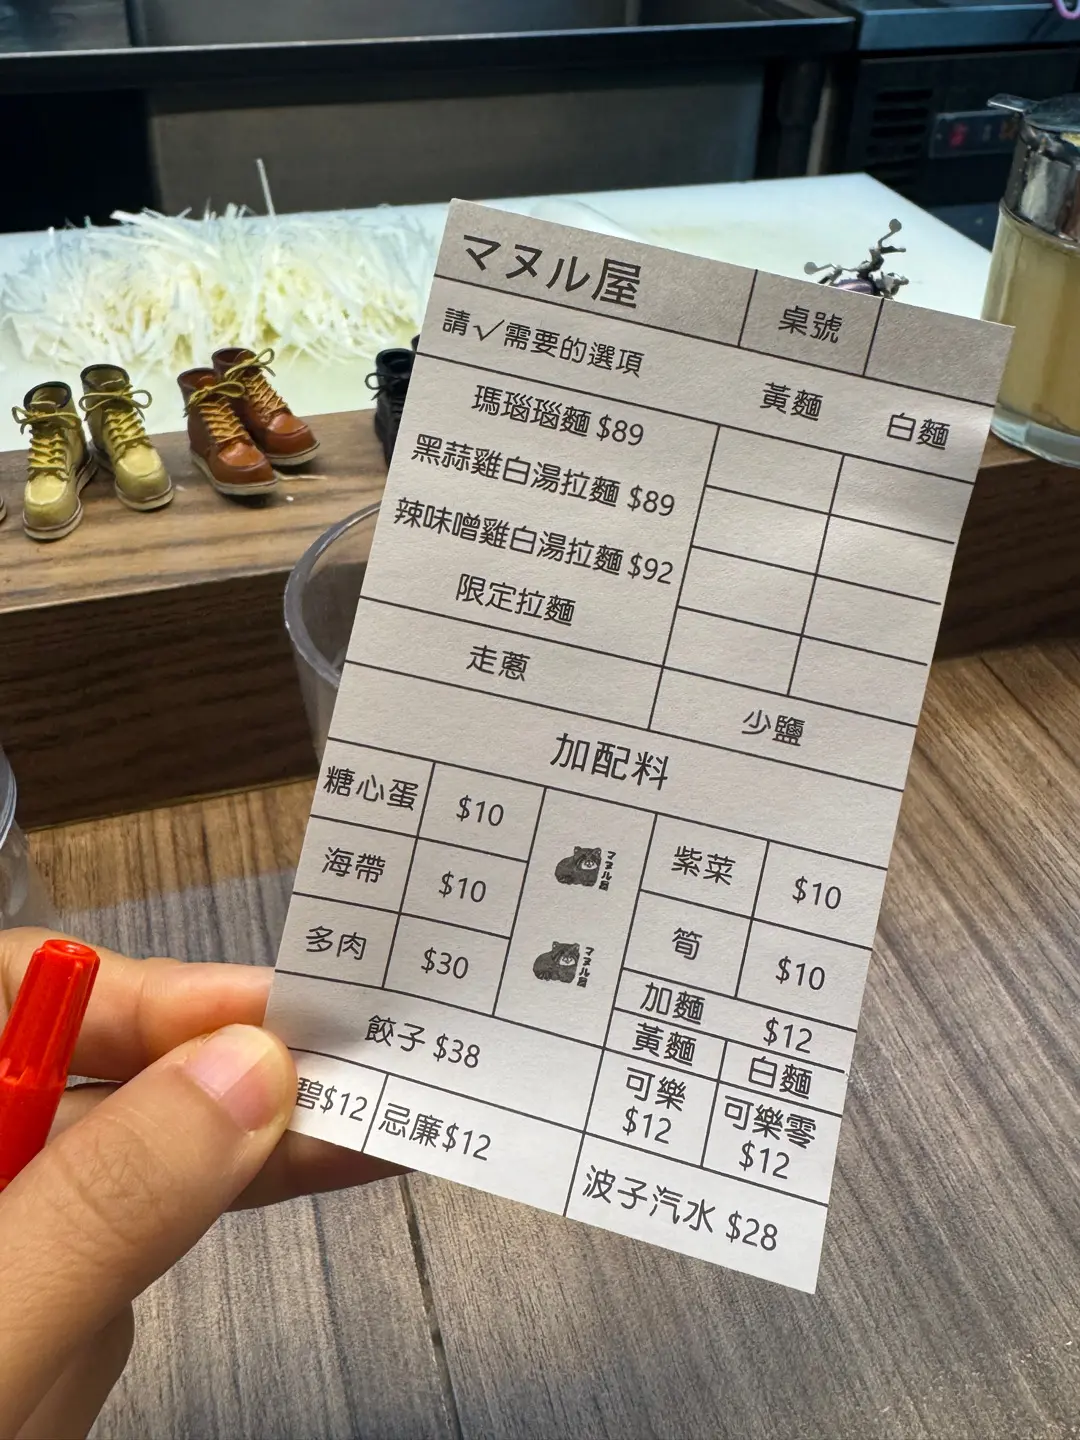 マヌル屋 桌號
請✓需要的選項 黃麵 白麵
瑪瑙瑙麵 $89
黑蒜雞白湯拉麵 $89
辣味噌雞白湯拉麵 $92
限定拉麵
走蔥 少鹽
加配料
糖心蛋 $10 紫菜 $10
海帶 $10 筍 $10
多肉 $30 加麵 $12
黃麵 白麵
マヌル屋
マヌル屋
餃子 $38 可樂 $12 可樂零 $12
碧$12 忌廉$12 波子汽水 $28